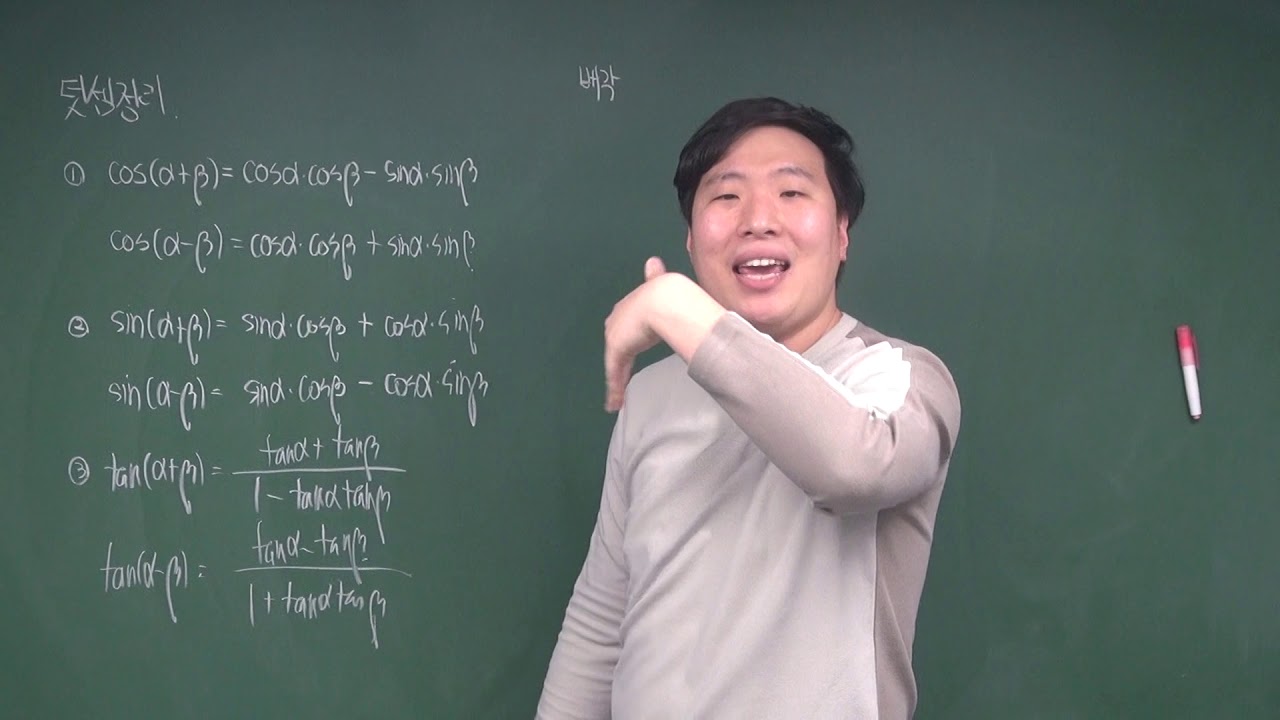 덧셈정리.
① cos(α+β)= cosα·cosβ - sinα·sinβ
cos(α-β) = cosα·cosβ + sinα·sinβ
② sin(α+β)= sinα·cosβ + cosα·sinβ
sin(α-β)= sinα·cosβ - cosα·sinβ
③ tan(α+β)= tanα + tanβ
1 - tanα tanβ
tan(α-β)= tanα - tanβ
1 + tanα tanβ
배각